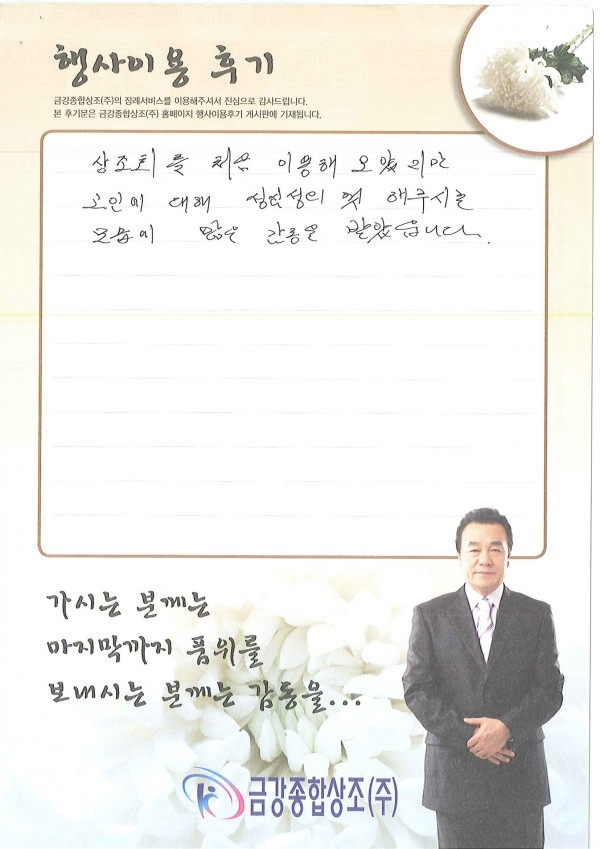 행사이용 후기
금강종합상조(주)의 장례서비스를 이용해주셔서 진심으로 감사드립니다.
본 후기문은 금강종합상조(주) 홈페이지 행사이용후기 게시판에 기재됩니다.
상조회를 처음 이용해 보았지만
고인에 대해 성심성의 껏 해주시는
모습에 많은 감동을 받았습니다.
가시는 분께는
마지막까지 품위를
보내시는 분께는 감동을...
금강종합상조(주)